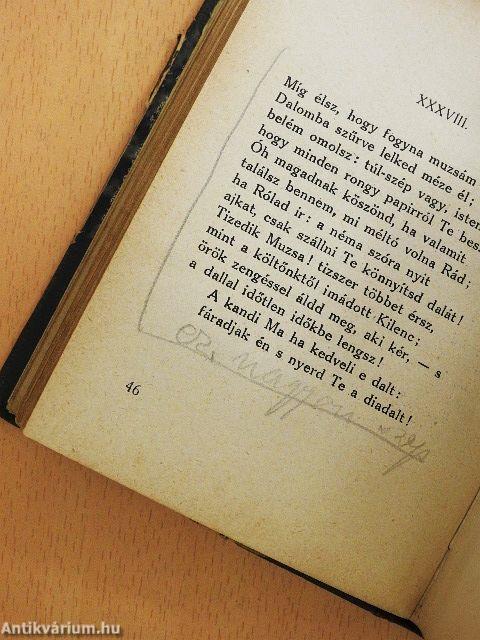 XXXVIII.
Míg élsz, hogy fogyna muzsám
Dalomba szűrve lelked méze él;
belém omolsz: túl-szép vagy, isten
hogy minden rongy papirról Te bes
Óh magadnak köszönd, ha valamit
találsz bennem, mi méltó volna Rád;
ha Rólad ir: a néma szóra nyit
ajkat, csak szállni Te könnyítsd dalát!
Tizedik Muzsa! tizszer többet érsz
mint a költőnktől imádott Kilenc;
örök zengéssel áldd meg, aki kér, — s
a dallal időtlen időkbe lengsz!
A kandi Ma ha kedveli e dalt:
fáradjak én s nyerd Te a diadalt!
ez nagyon szép
46
Antikvárium.hu